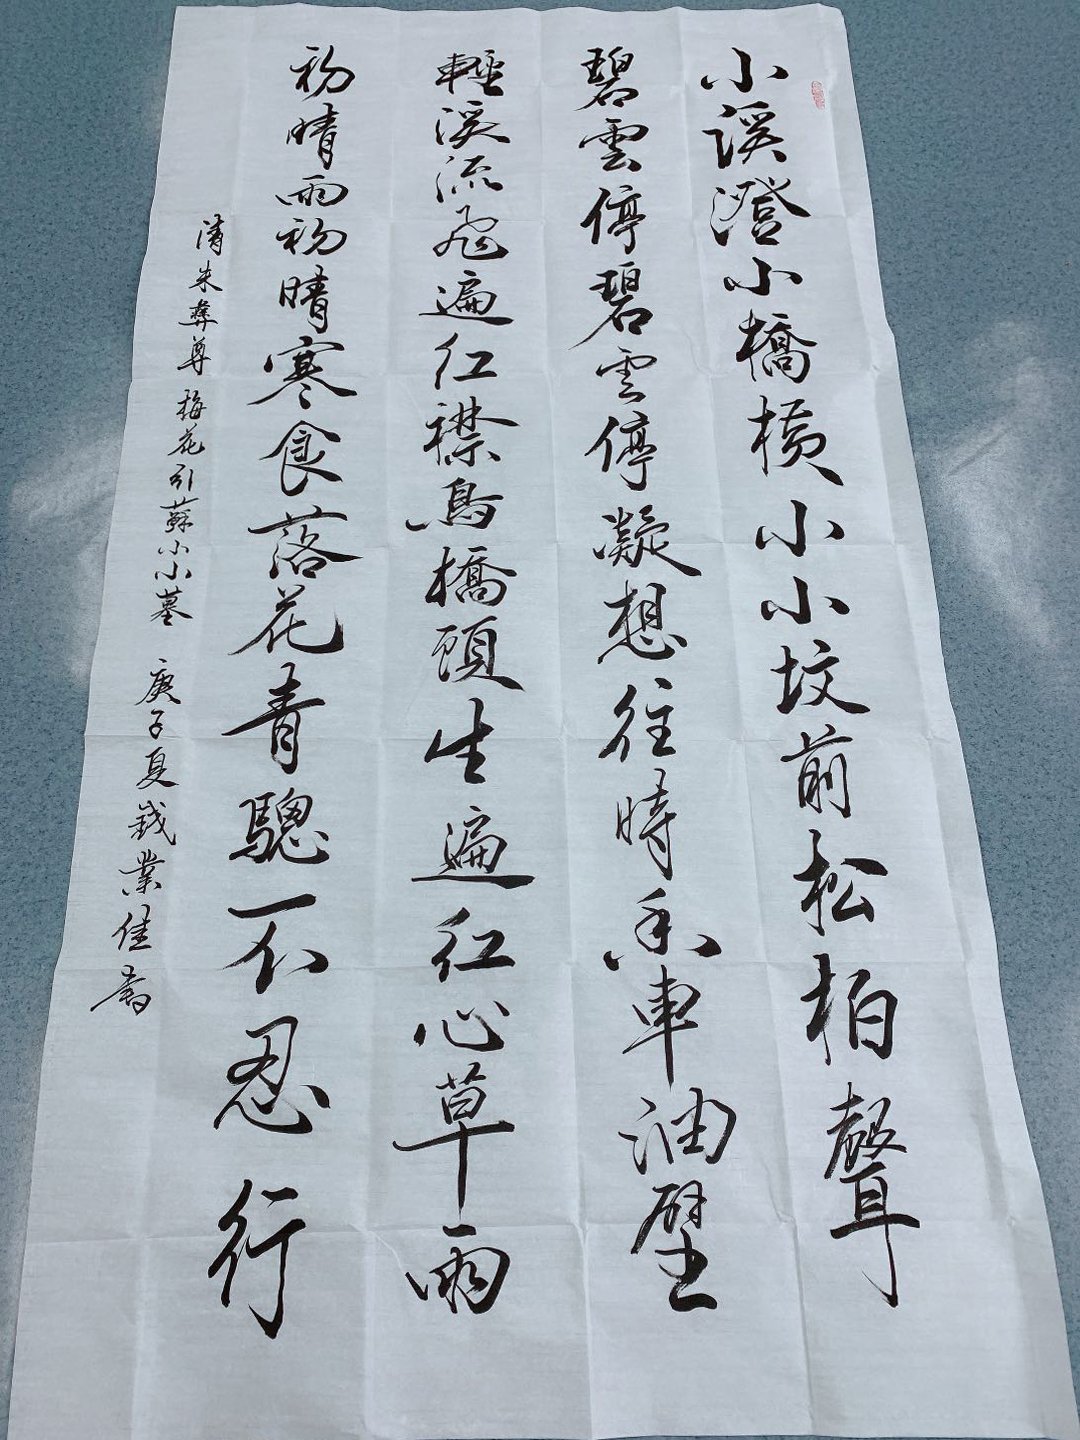 小溪澄小橋橫小小坟前松柏聲
碧雲停碧雲停凝想往時香車油壁
輕溪流飛遍紅襟鳥橋頭生遍紅心草雨
初晴雨初晴寒食落花青驄不忍行
清朱彝尊 梅花引蘇小小墓 庚子夏 業佳書